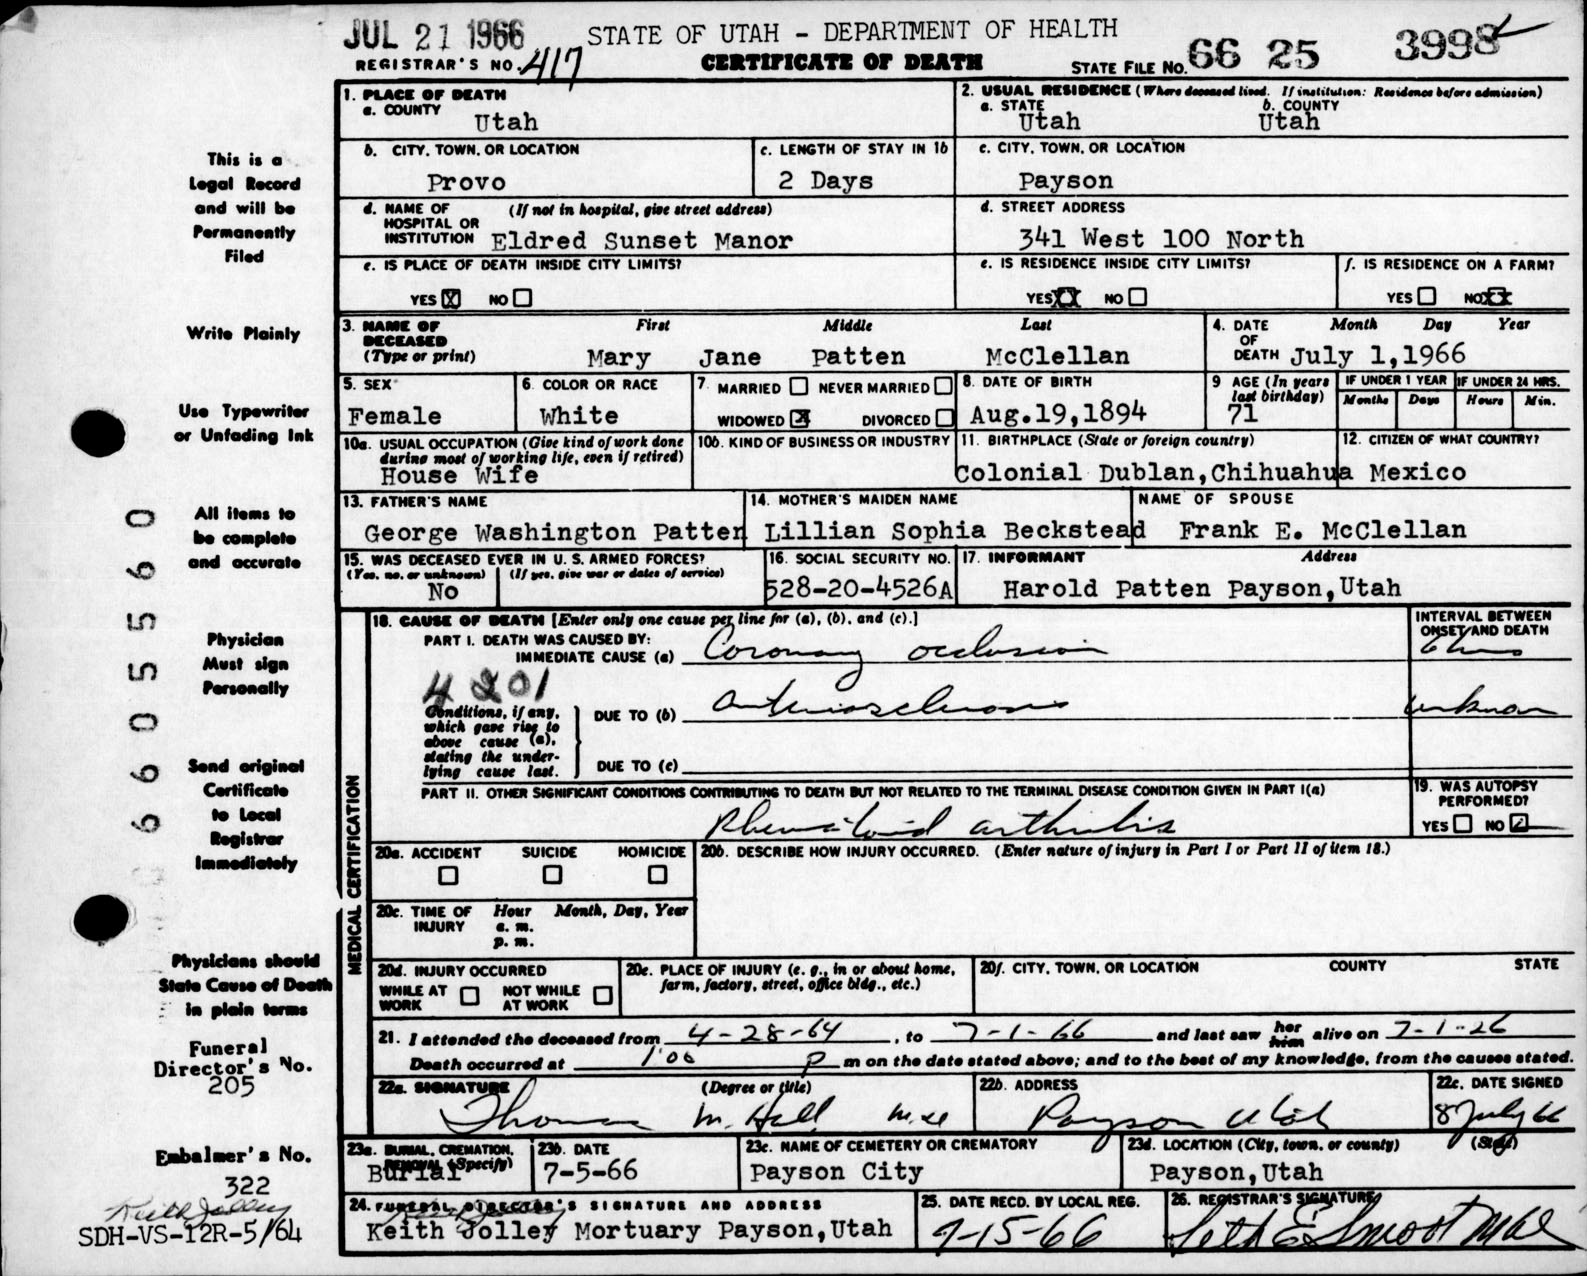 JUL 21 1966 STATE OF UTAH - DEPARTMENT OF HEALTH 66 25 3998
REGISTRAR'S NO. 417 CERTIFICATE OF DEATH STATE FILE NO.
1. PLACE OF DEATH
a. COUNTY
Utah
2. USUAL RESIDENCE (Where deceased lived. If institution: Residence before admission)
a. STATE b. COUNTY
Utah Utah
b. CITY, TOWN, OR LOCATION
Provo
c. LENGTH OF STAY IN 1b
2 Days
c. CITY, TOWN, OR LOCATION
Payson
d. NAME OF HOSPITAL OR INSTITUTION (If not in hospital, give street address)
Eldred Sunset Manor
d. STREET ADDRESS
341 West 100 North
e. IS PLACE OF DEATH INSIDE CITY LIMITS?
YES X NO
e. IS RESIDENCE INSIDE CITY LIMITS?
YES XX NO
f. IS RESIDENCE ON A FARM?
YES NO XX
3. NAME OF DECEASED (Type or print) First Middle Last
Mary Jane Patten McClellan
4. DATE OF DEATH Month Day Year
July 1,1966
5. SEX
Female
6. COLOR OR RACE
White
7. MARRIED NEVER MARRIED
WIDOWED X DIVORCED
8. DATE OF BIRTH
Aug.19,1894
9 AGE (In years last birthday)
71
IF UNDER 1 YEAR IF UNDER 24 HRS.
Months Days Hours Min.
10a. USUAL OCCUPATION (Give kind of work done during most of working life, even if retired)
House Wife
10b. KIND OF BUSINESS OR INDUSTRY
11. BIRTHPLACE (State or foreign country)
Colonial Dublan,Chihuahua Mexico
12. CITIZEN OF WHAT COUNTRY?
13. FATHER'S NAME
George Washington Patten
14. MOTHER'S MAIDEN NAME
Lillian Sophia Beckstead
NAME OF SPOUSE
Frank E. McClellan
15. WAS DECEASED EVER IN U. S. ARMED FORCES?
(Yes, no, or unknown) (If yes, give war or dates of service)
No
16. SOCIAL SECURITY NO.
528-20-4526A
17. INFORMANT Address
Harold Patten Payson,Utah
MEDICAL CERTIFICATION
18. CAUSE OF DEATH [Enter only one cause per line for (a), (b), and (c).]
INTERVAL BETWEEN ONSET AND DEATH
PART I. DEATH WAS CAUSED BY:
IMMEDIATE CAUSE (a) Coronary occlusion
4201
Conditions, if any, which gave rise to above cause (a), stating the underlying cause last.
DUE TO (b) arteriosclerosis unknown
DUE TO (c)
PART II. OTHER SIGNIFICANT CONDITIONS CONTRIBUTING TO DEATH BUT NOT RELATED TO THE TERMINAL DISEASE CONDITION GIVEN IN PART I(a)
Rheumatoid arthritis
19. WAS AUTOPSY PERFORMED?
YES NO
20a. ACCIDENT SUICIDE HOMICIDE
20b. DESCRIBE HOW INJURY OCCURRED. (Enter nature of injury in Part I or Part II of item 18.)
20c. TIME OF INJURY Hour Month, Day, Year
a. m.
p. m.
20d. INJURY OCCURRED
WHILE AT WORK NOT WHILE AT WORK
20e. PLACE OF INJURY (e. g., in or about home, farm, factory, street, office bldg., etc.)
20f. CITY, TOWN, OR LOCATION COUNTY STATE
21. I attended the deceased from 4-28-64, to 7-1-66 and last saw her him alive on 7-1-26
Death occurred at 1:00 P m on the date stated above; and to the best of my knowledge, from the causes stated.
22a. SIGNATURE (Degree or title)
Thomas M. Hall
22b. ADDRESS
Payson Utah
22c. DATE SIGNED
8 July 66
23a. BURIAL, CREMATION, REMOVAL (Specify)
Burial
23b. DATE
7-5-66
23c. NAME OF CEMETERY OR CREMATORY
Payson City
23d. LOCATION (City, town, or county) (State)
Payson,Utah
24. FUNERAL DIRECTOR'S SIGNATURE AND ADDRESS
Keith Jolley Mortuary Payson,Utah
25. DATE RECD. BY LOCAL REG.
7-15-66
26. REGISTRAR'S SIGNATURE
This is a
Legal Record
and will be
Permanently
Filed
Write Plainly
Use Typewriter
or Unfading Ink
All items to
be complete
and accurate
Physician
Must sign
Personally
Send original
Certificate
to Local
Registrar
Immediately
Physicians should
State Cause of Death
in plain terms
Funeral
Director's No.
205
Embalmer's No.
322
Keith Jolley
SDH-VS-12R-5/64
66055560